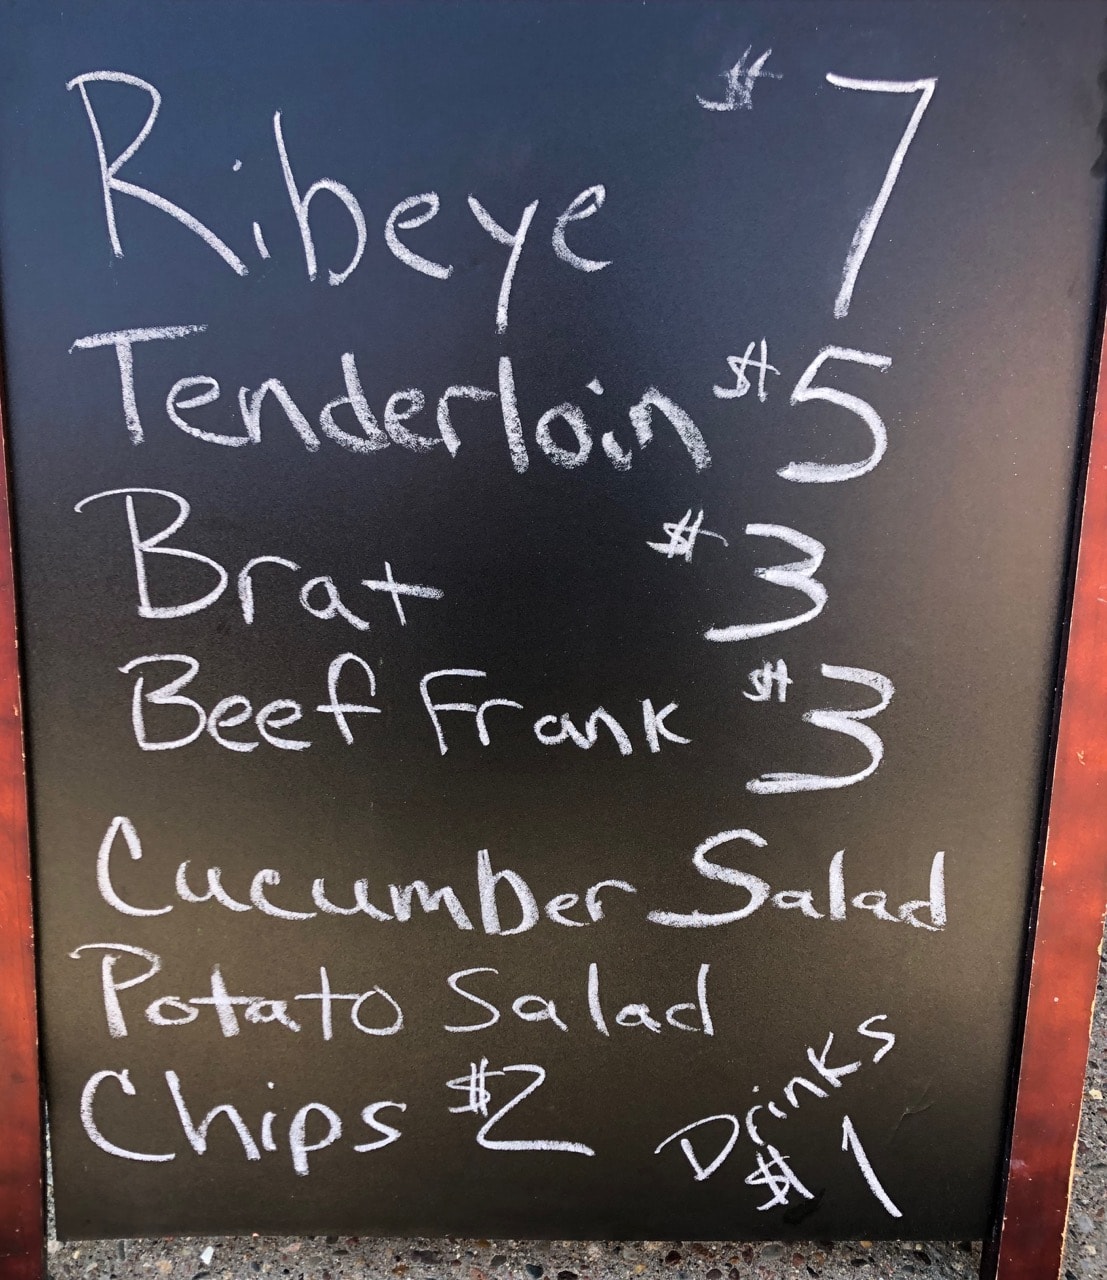 Ribeye $7
Tenderloin $5
Brat $3
Beef Frank $3
Cucumber Salad
Potato Salad
Chips $2
Drinks
$1